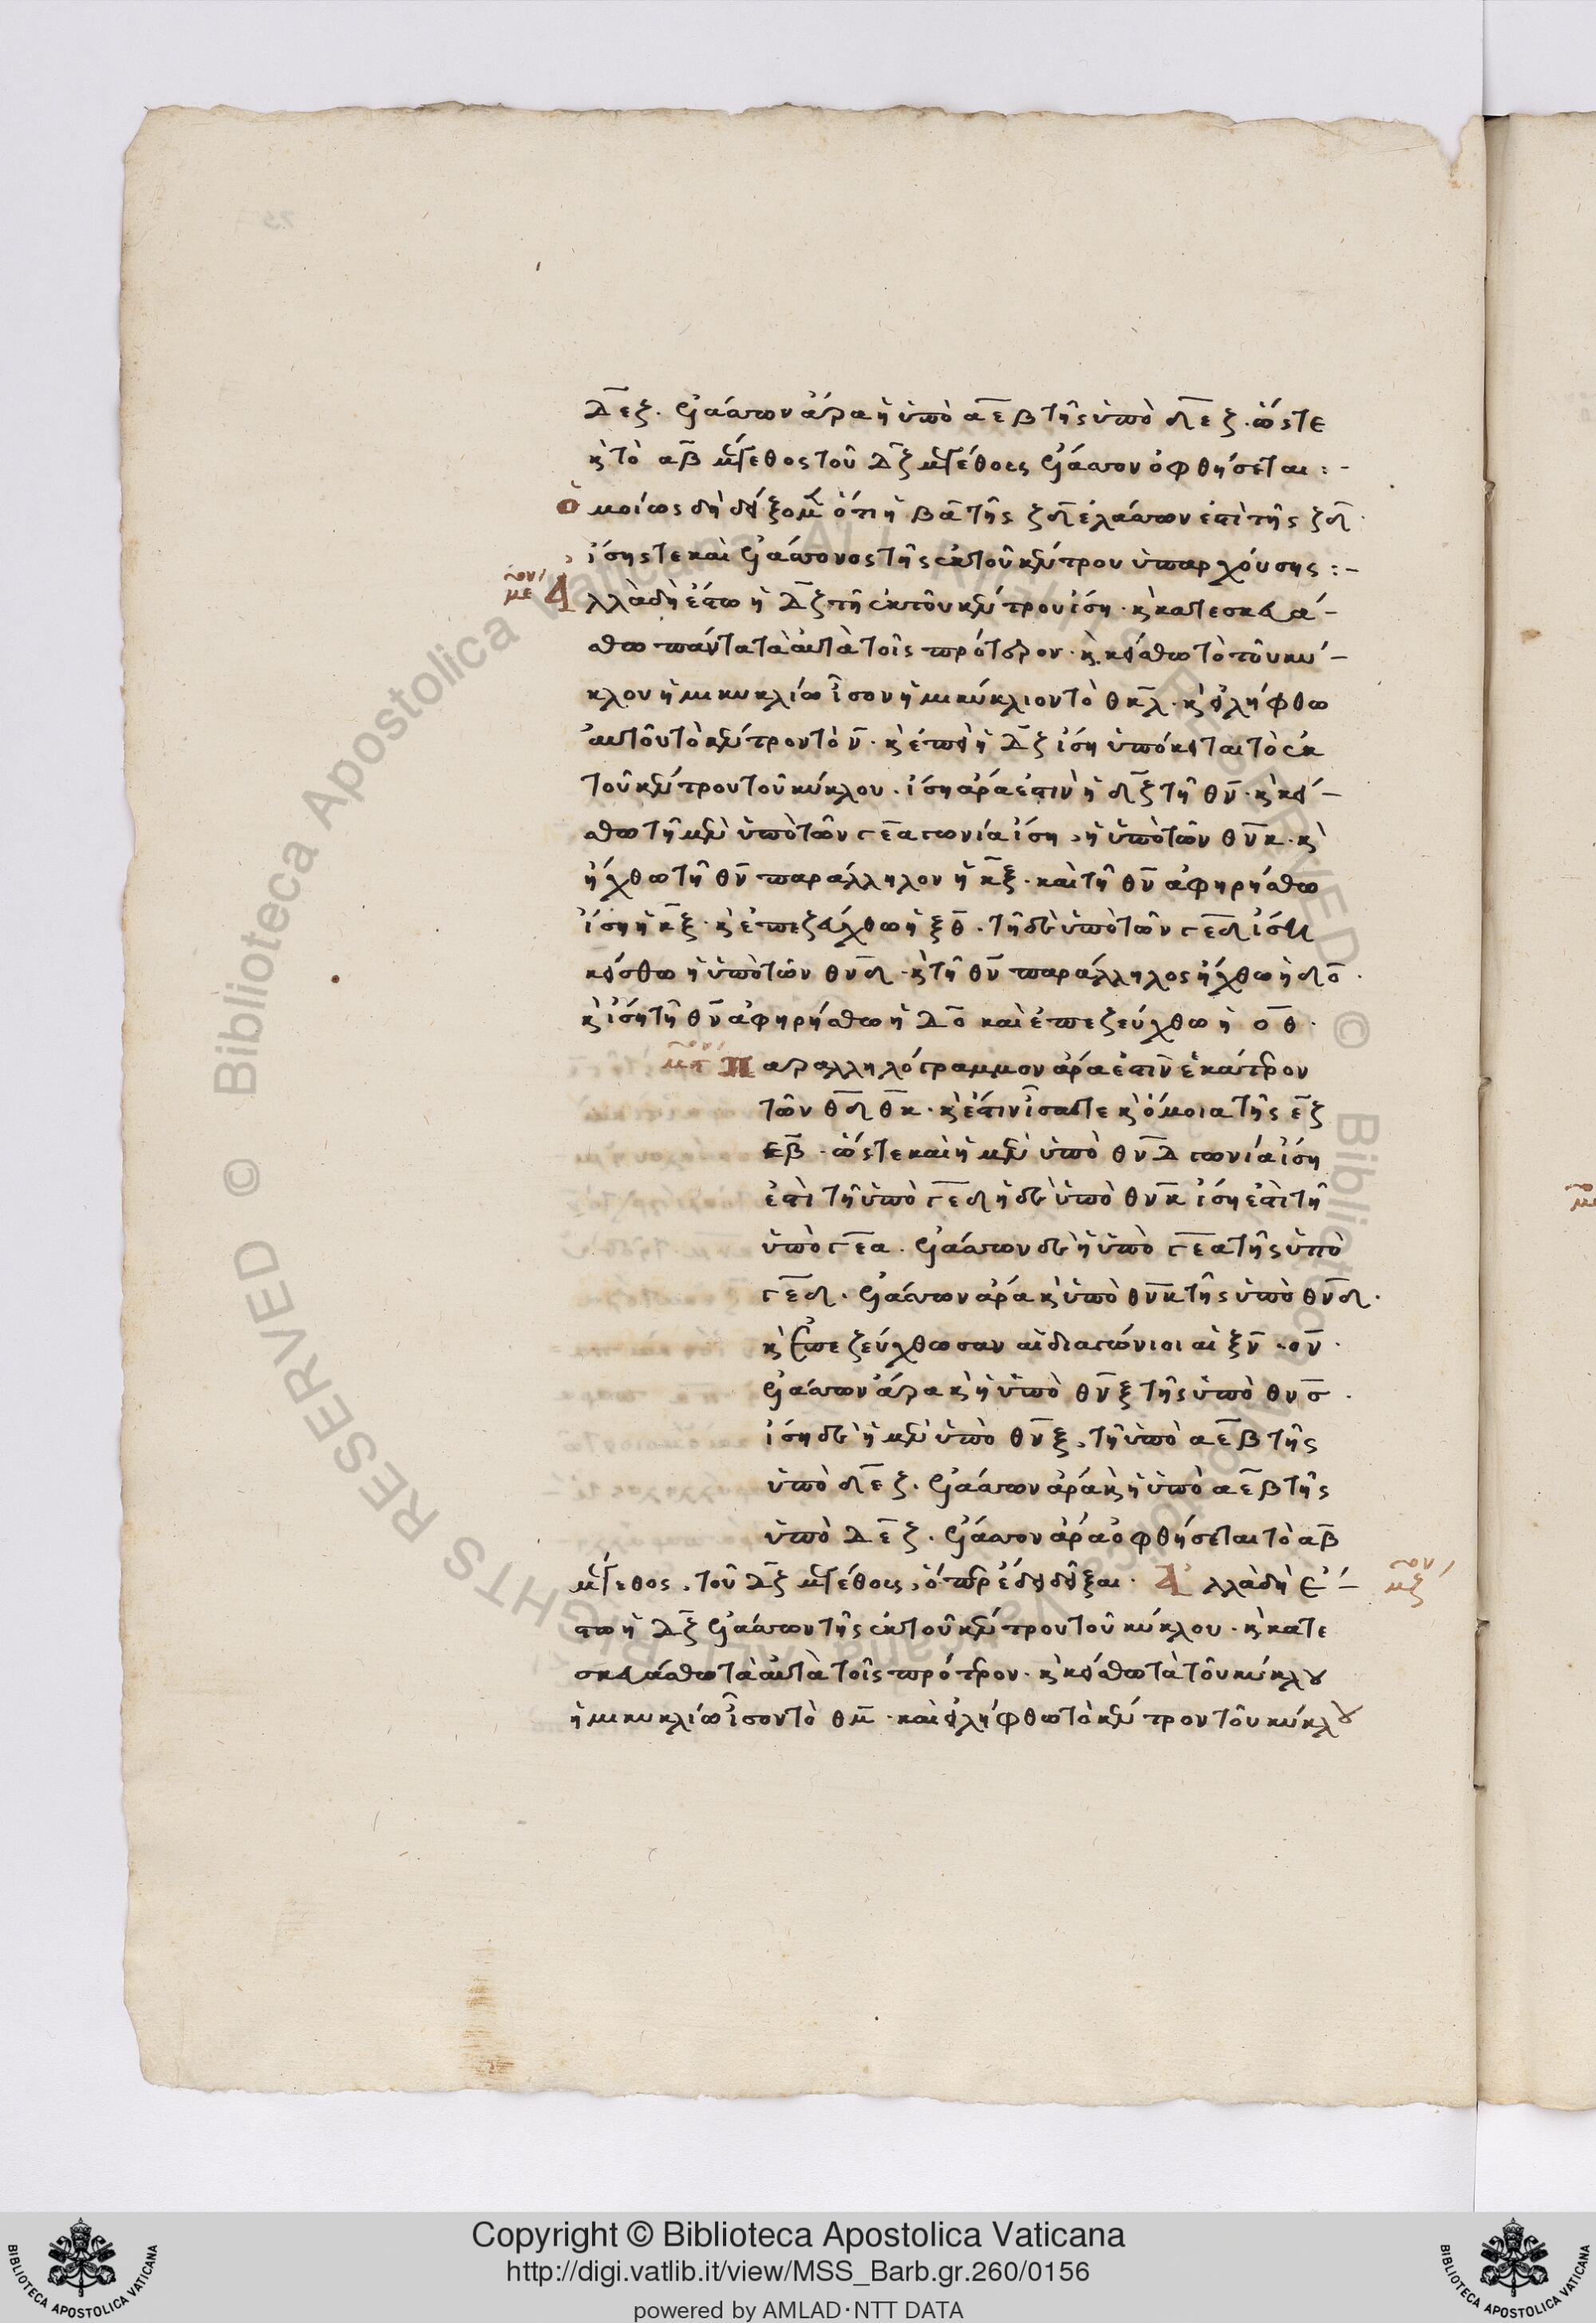 δεζ. ἐλάττων ἄρα ἡ ὑπὸ αεβ τῆς ὑπὸ δεζ. ὥστε
κ τὸ αβ μέγεθος τοῦ δζ μεγέθους ἔλαττον ὀφθήσεται :-
ὁμοίως δὴ δείξομεν ὅτι ἡ βα τῆς ζδ ἐλάττων ἐστὶ τῆς ζδ
ἴσης τε καὶ ἐλάττονος τῆς ἐκ τοῦ κέντρου ὑπαρχούσης :-
με Ἀλλὰ δὴ ἔστω ἡ δζ τῆ ἐκ τοῦ κέντρου ἴση. κ κατεσκευά-
σθω πάντα τὰ αὐτὰ τοῖς πρότερον. κ κείσθω τὸ τοῦ κύ-
κλου ἡμικυκλίω ἴσον ἡμικύκλιον τὸ θκλ. κ εἰλήφθω
αὐτοῦ τὸ κέντρον τὸ ν. κ ἐπεὶ ἡ δζ ἴση ὑπόκειται τὸ ἐκ
τοῦ κέντρου τοῦ κύκλου. ἴση ἄρα ἐστὶν ἡ δζ τῆ θν. κ κεί-
σθω τῆ μὲν ὑπὸ τῶν γεα γωνία ἴση, ἡ ὑπὸ τῶν θνκ. κ
ἤχθω τῆ θν παράλληλον ἡ κξ. καὶ τῆ θν ἀφηρήσθω
ἴση ἡ κξ. κ ἐπεζεύχθω ἡ ξθ. τῆ δὲ ὑπὸ τῶν γεδ ἴση
κείσθω ἡ ὑπὸ τῶν θνδ. κ τῆ θν παράλληλος ἤχθω ἡ δο.
κ ἴση τῆ θν ἀφηρήσθω ἡ δο καὶ ἐπεζεύχθω ἡ οθ.
Παραλληλόγραμμον ἄρα ἐστὶν ἑκάτερον
τῶν θδ θκ. κ ἐστιν ἴσα τε κ ὅμοια τῆς εζ
εβ. ὥστε καὶ ἡ μὲν ὑπὸ θνδ γωνία ἴση
ἐστὶ τῆ ὑπὸ γεδ ἡ δὲ ὑπὸ θνκ ἴση ἐστὶ τῆ
ὑπὸ γεα. ἐλάττων δὲ ἡ ὑπὸ γεα τῆς ὑπὸ
γεδ. ἐλάττων ἄρα κ ὑπὸ θνκ τῆς ὑπὸ θνδ.
κ ἐπεζεύχθωσαν αἱ διαγώνιοι αἱ ξν. ον.
ἐλάττων ἄρα κ ἡ ὑπὸ θνξ τῆς ὑπὸ θνο.
ἴση δὲ ἡ μὲν ὑπὸ θνξ, τῆ ὑπὸ αεβ τῆς
ὑπὸ δεζ. ἐλάττων ἄρα κ ἡ ὑπὸ αεβ τῆς
ὑπὸ δεζ. ἔλαττον ἄρα ὀφθήσεται τὸ αβ
μέγεθος, τοῦ δζ μεγέθους, ὅπερ ἔδει δεῖξαι. Ἀλλὰ δὴ ἔ-
στω ἡ δζ ἐλάττων τῆς ἐκ τοῦ κέντρου τοῦ κύκλου. κ κατε
σκευάσθω τὰ αὐτὰ τοῖς πρότερον. κ κείσθω τὰ τοῦ κύκλου
ἡμικυκλίω ἴσον τὸ θμ. καὶ εἰλήφθω τὸ κέντρον τοῦ κύκλου
Copyright © Biblioteca Apostolica Vaticana
http://digi.vatlib.it/view/MSS_Barb.gr.260/0156
powered by AMLAD·NTT DATA